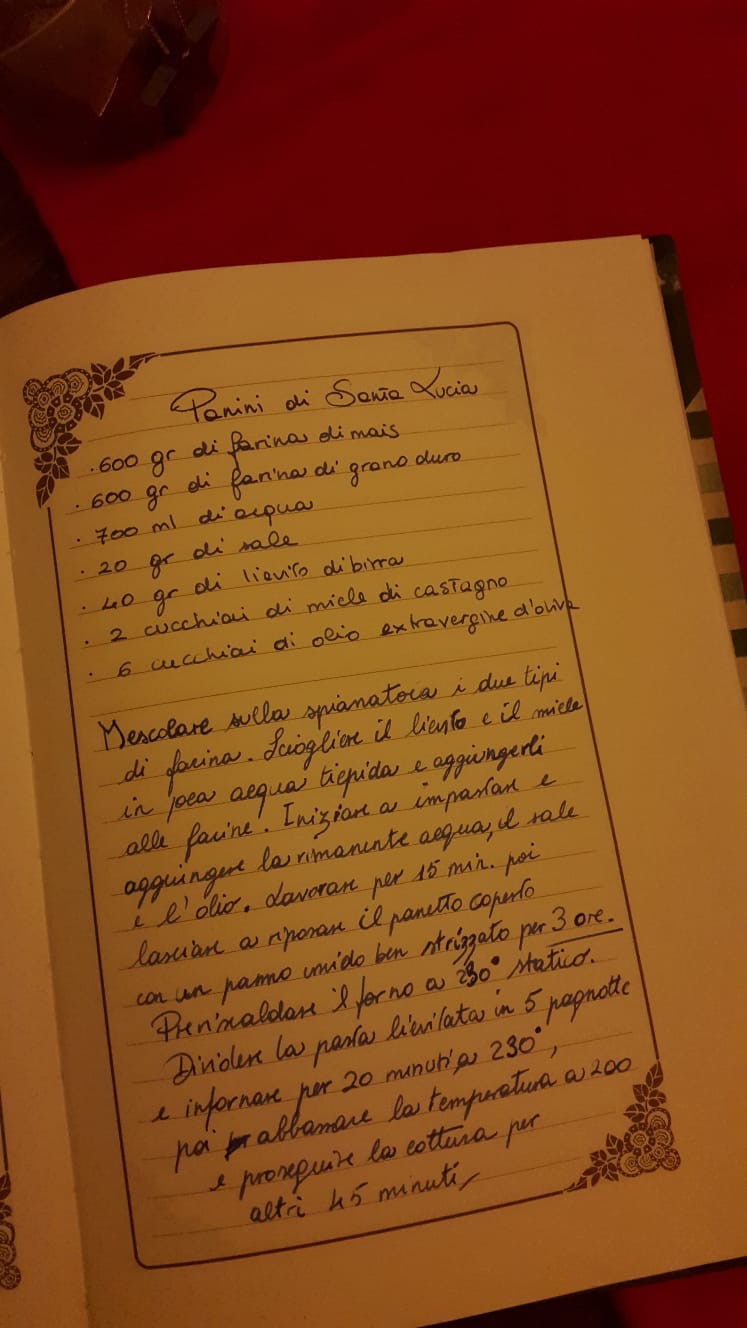 Panini di Santa Lucia
. 600 gr di farina di mais
. 600 gr di farina di grano duro
. 700 ml di acqua
. 20 gr di sale
. 40 gr di lievito di birra
. 2 cucchiai di miele di castagno
. 6 cucchiai di olio extravergine d'oliva
Mescolare sulla spianatoia i due tipi
di farina. Sciogliere il lievito e il miele
in poca acqua tiepida e aggiungerli
alle farine. Iniziare a impastare e
aggiungere la rimanente acqua, il sale
e l'olio. Lavorare per 15 min. poi
lasciare a riposare il panetto coperto
con un panno umido ben strizzato per 3 ore.
Preriscaldare il forno a 230° statico.
Dividere la pasta lievitata in 5 pagnotte
e infornare per 20 minuti a 230°,
poi abbassare la temperatura a 200
e proseguire la cottura per
altri 45 minuti